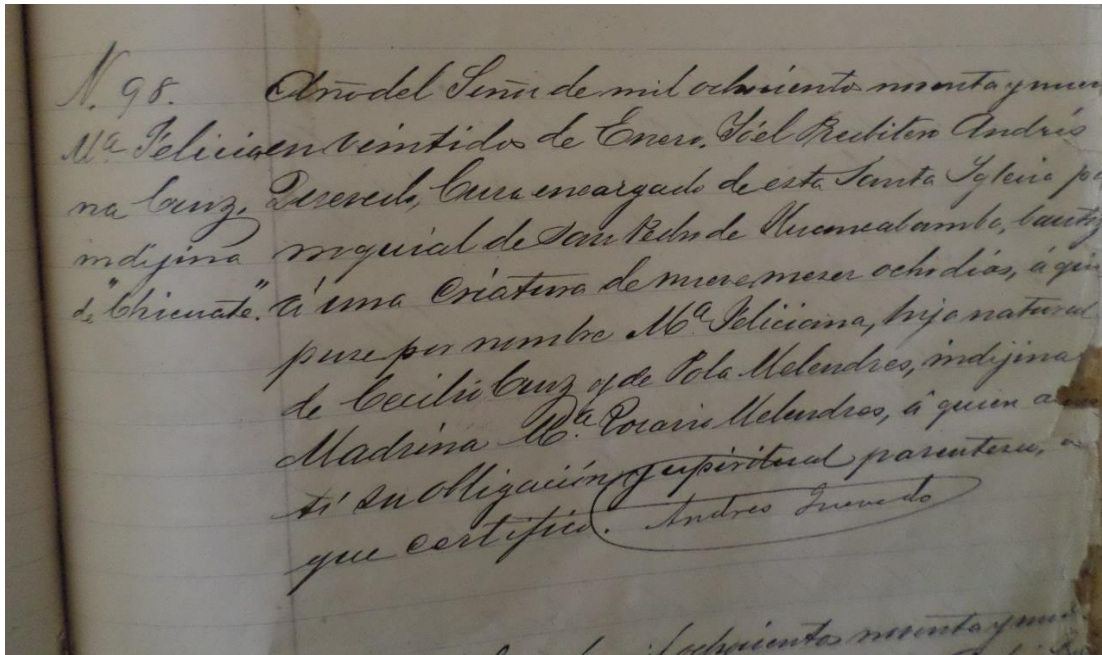 N. 98.
Mª Felicia
na Cruz.
indijina
de "Chicuate".
Año del Señor de mil ochocientos noventa y nuev
en veintidos de Enero. Yó el Presbitero Andrés
Quevedo, Cura encargado de esta Santa Yglecia pa
rroquial de San Pedro de Huancabamba, bautiz
á una Criatura de nueve meses ocho dias, á quien
puse por nombre Mª Feliciana, hija natural
de Cecilio Cruz y de Pola Melendres, indijinas
Madrina Mª Rosario Melendres, á quien a
tí su obligación y espiritual parentesco,
que certifico. Andres Quevedo
ochocientos noventa y nue